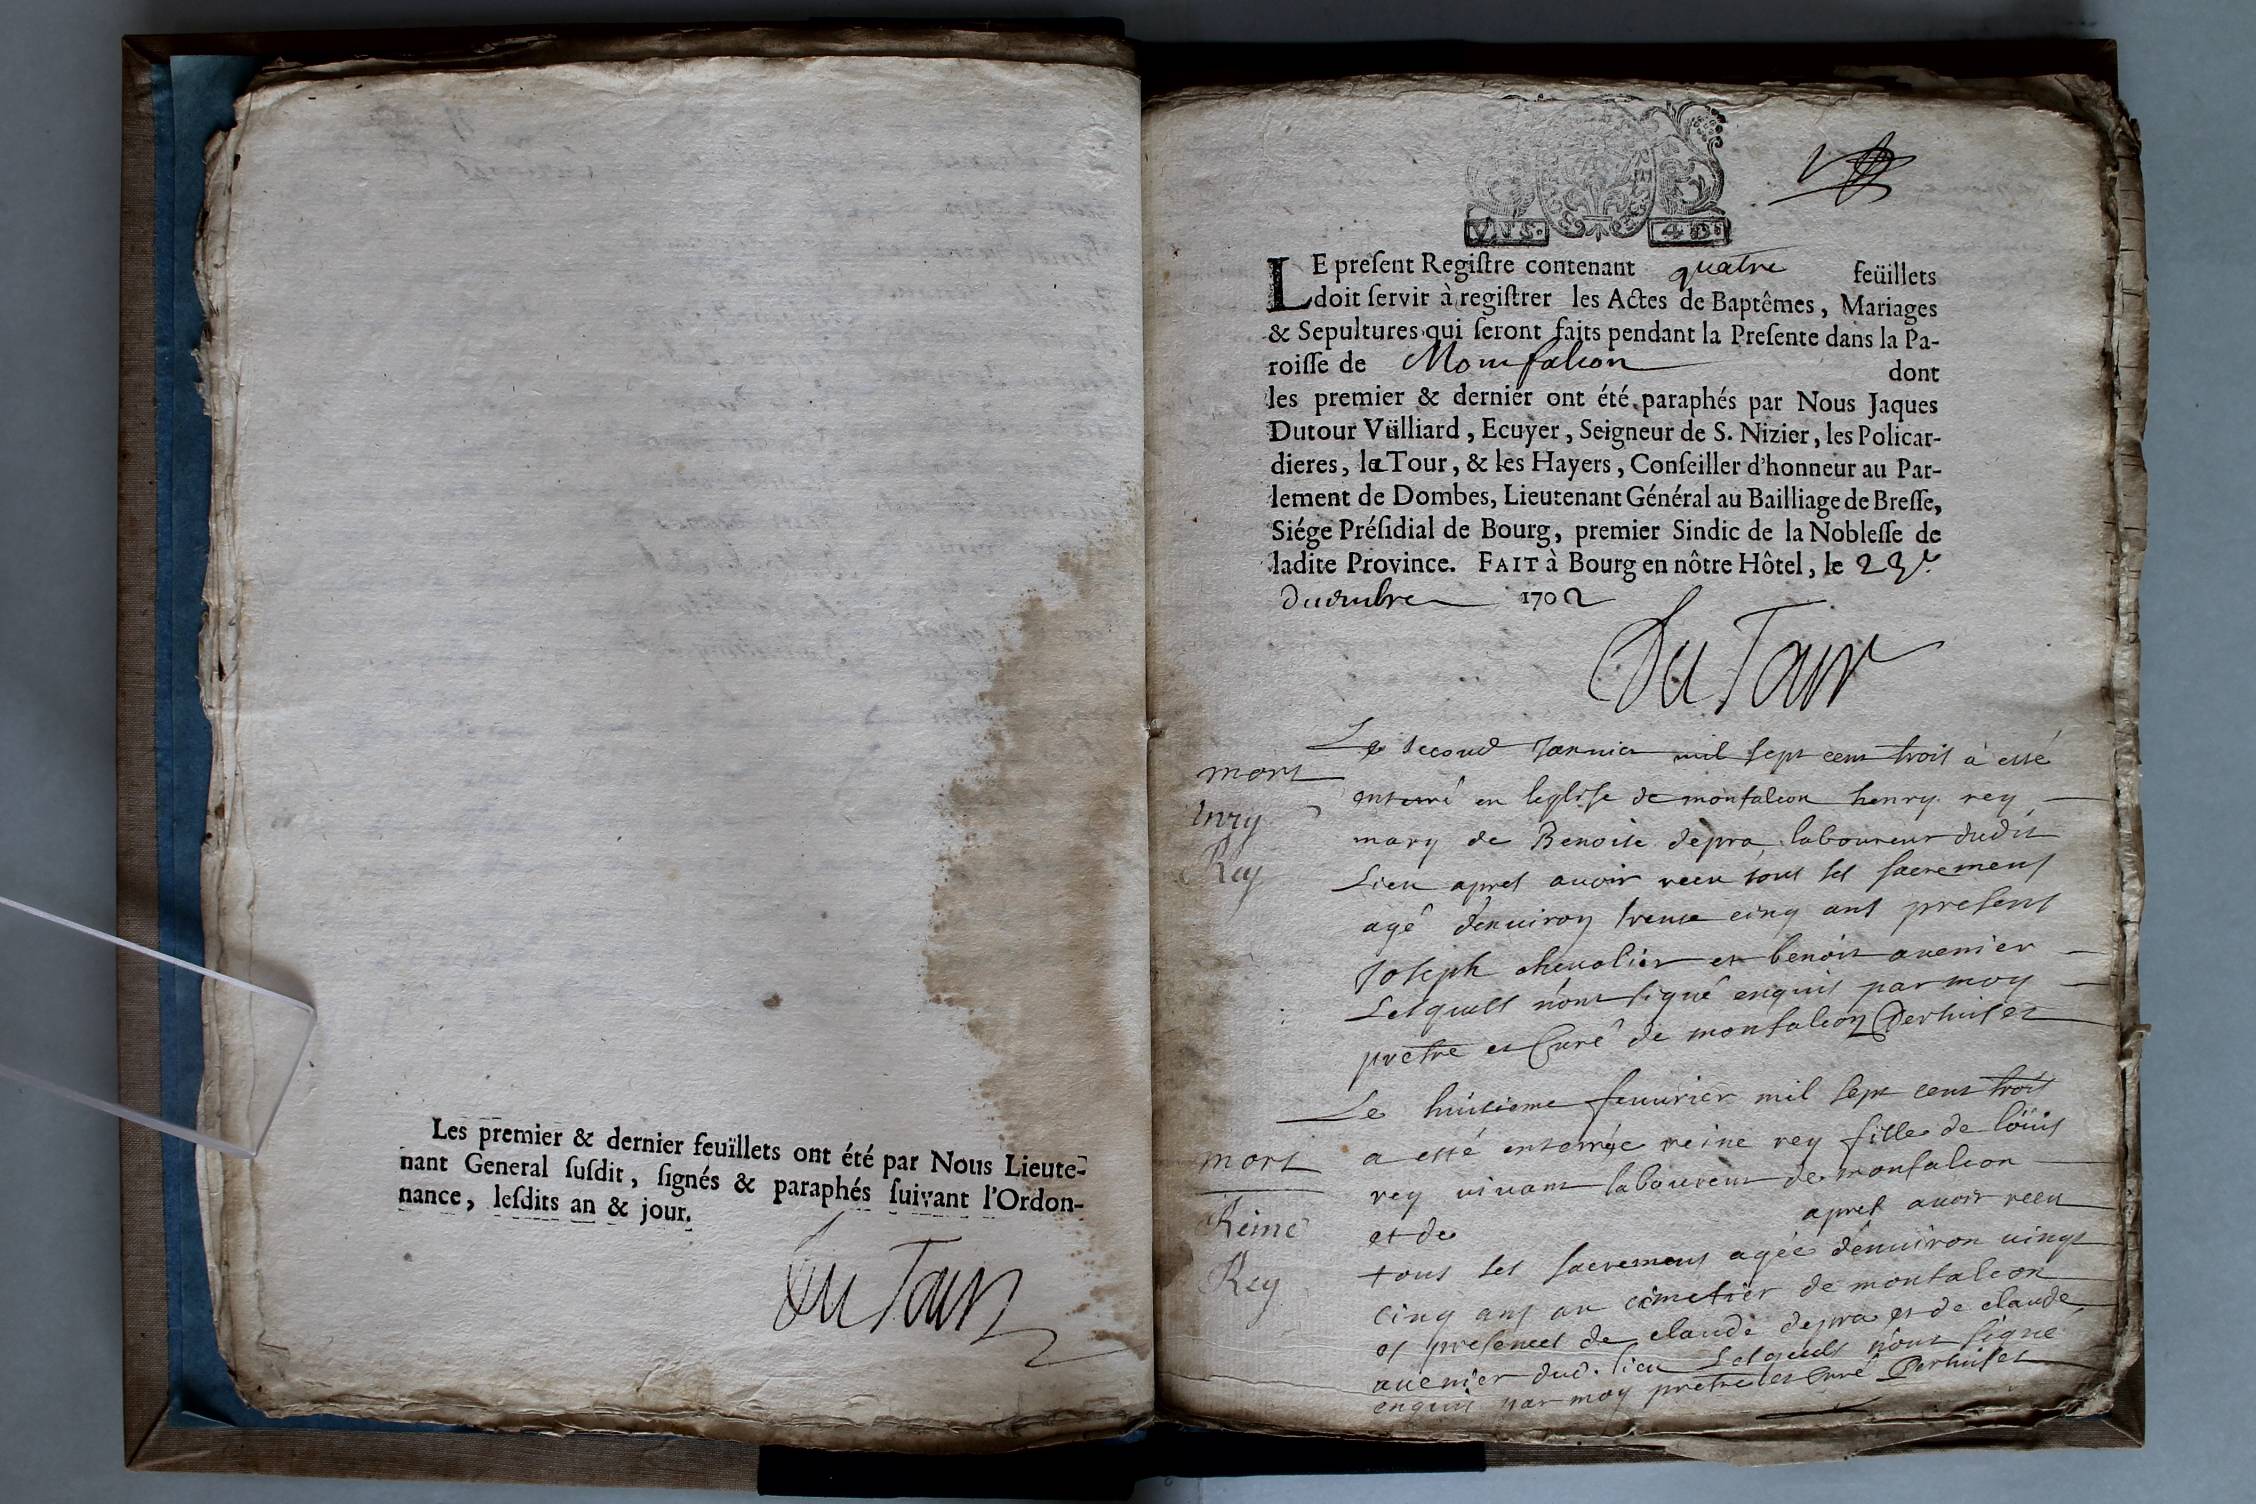 Les premier & dernier feuïllets ont été par Nous Lieute-
nant General ſuſdit, ſignés & paraphés ſuivant l'Ordon-
nance, leſdits an & jour.
Du Tour
VNS. 4D.
LE preſent Regiſtre contenant quatre feüillets
doit ſervir à regiſtrer les Actes de Baptêmes, Mariages
& Sepultures qui ſeront faits pendant la Preſente dans la Pa-
roiſſe de Monfalcon dont
les premier & dernier ont été paraphés par Nous Jaques
Dutour Vülliard, Ecuyer, Seigneur de S. Nizier, les Policar-
dieres, la Tour, & les Hayers, Conſeiller d'honneur au Par-
lement de Dombes, Lieutenant Général au Bailliage de Breſſe,
Siége Préſidial de Bourg, premier Sindic de la Nobleſſe de
ladite Province. FAIT à Bourg en nôtre Hôtel, le 23e.
decembre 1702
Du Tour
mort
henry
Rey
Le second Janvier mil sept cent trois à esté
enterré en leglise de monfalcon henry rey
mary de Benoite depra laboureur dudit
Lieu apres avoir receu tous les sacremens
agé denviron trente cinq ans presens
Joseph chevalier et benoit avenier
Lesquels n'ont signé enquis par moy
pretre et Curé de monfalcon Perhuiset
mort
Reine
Rey
Le huitieme fevurier mil sept cent trois
a esté enterrée reine rey fille de loüis
rey vivant laboureur de monfalcon
et de apres avoir receu
tous les sacremens agée denviron vingt
cinq ans au cimetier de monfalcon
es presences de claude depra et de claude
avenier dud. lieu Lesquels n'ont signé
enquis par moy pretre et Curé Perhuiset